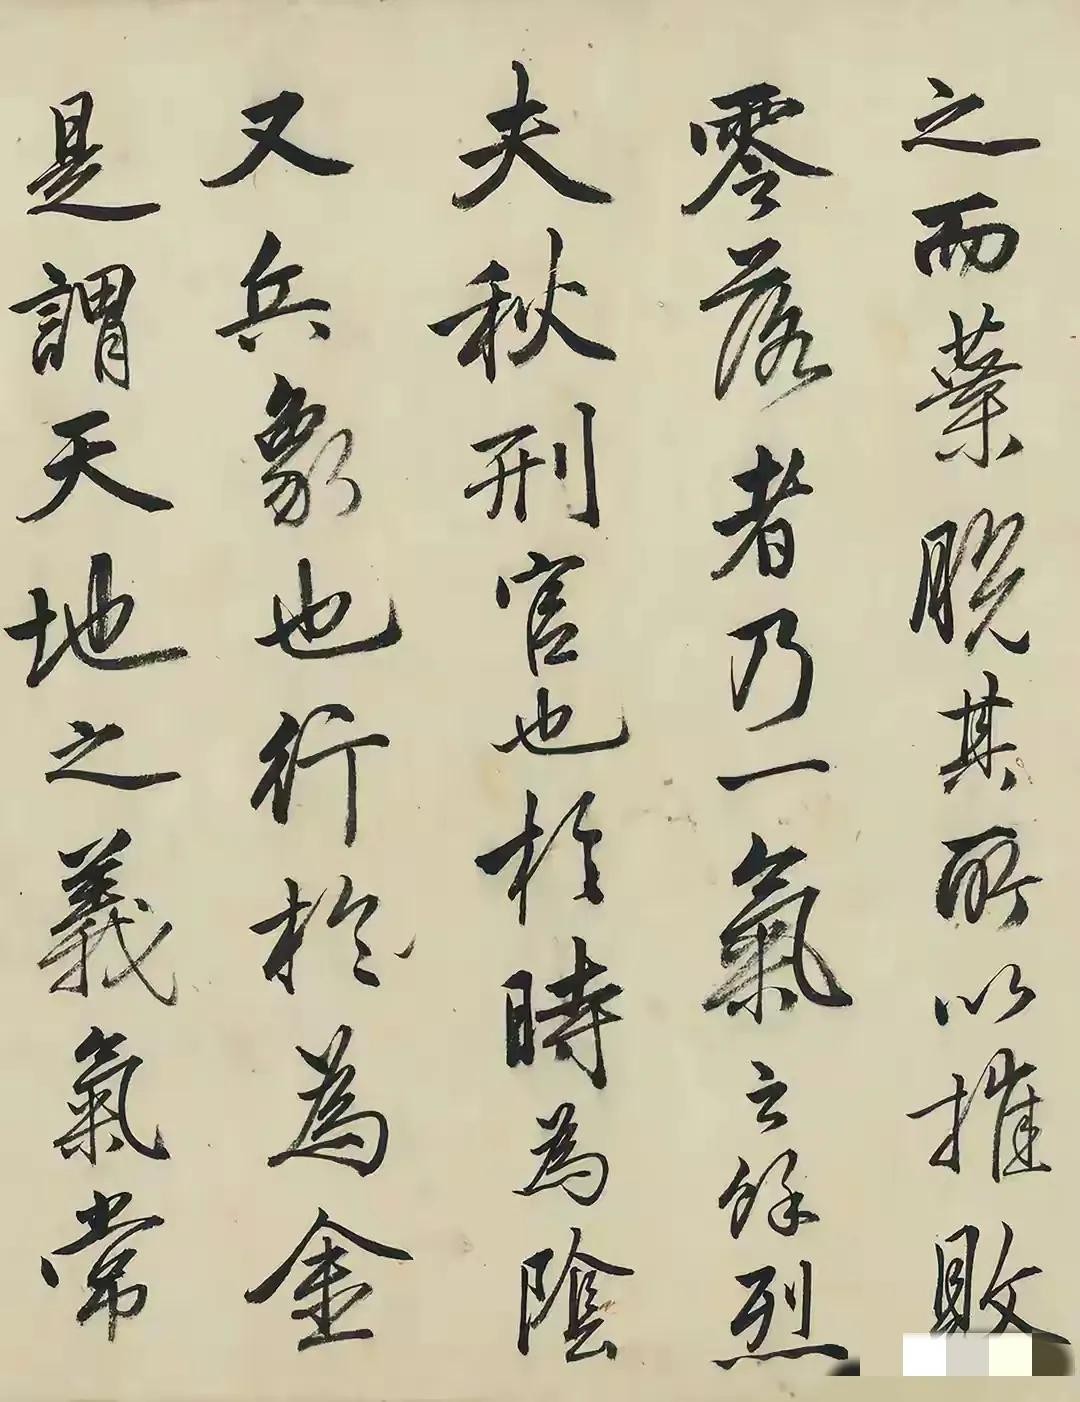 之而葉脫其所以摧敗
零落者乃一氣之餘烈
夫秋刑官也於時為陰
又兵象也行於為金
是謂天地之義氣常